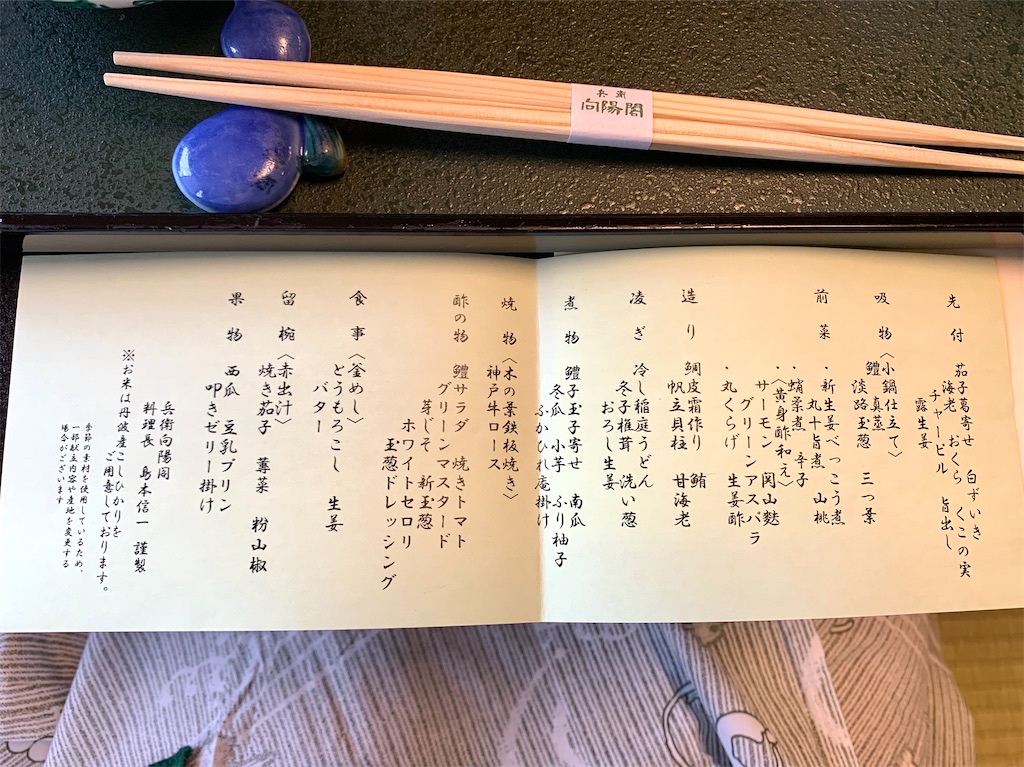 兵衛
向陽閣
先付 茄子葛寄せ 白ずいき
海老 おくら くこの実
チャービル 旨出し
露生姜
吸物〈小鍋仕立て〉
鱧真蒸 三つ葉
淡路玉葱
前菜 ・新生姜べっこう煮
丸十旨煮 山桃
・蛸柔煮 辛子
・〈黄身酢和え〉
サーモン 関山麩
グリーンアスパラ
・丸くらげ 生姜酢
造り 鯛皮霜作り 鮪
帆立貝柱 甘海老
凌ぎ 冷し稲庭うどん
冬子椎茸 洗い葱
おろし生姜
煮物 鱧子玉子寄せ 南瓜
冬瓜 小芋 ふり柚子
ふかひれ庵掛け
焼物〈木の葉鉄板焼き〉
神戸牛ロース
酢の物 鱧サラダ 焼きトマト
グリーンマスタード
芽じそ 新玉葱
ホワイトセロリ
玉葱ドレッシング
食事〈釜めし〉
とうもろこし 生姜
バター
留椀〈赤出汁〉
焼き茄子 蓴菜 粉山椒
果物 西瓜 豆乳プリン
叩きゼリー掛け
兵衛向陽閣
料理長 島本信一 謹製
※お米は丹波産こしひかりを
ご用意しております。
季節の素材を使用しているため、
一部献立内容や産地を変更する
場合がございます